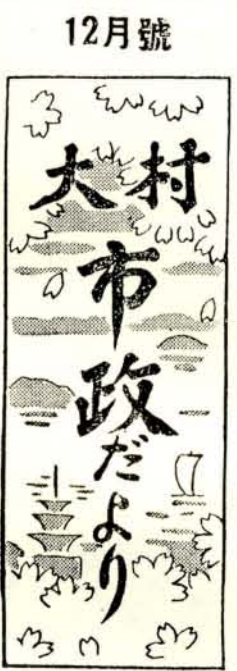 12月號
大村
市政だより